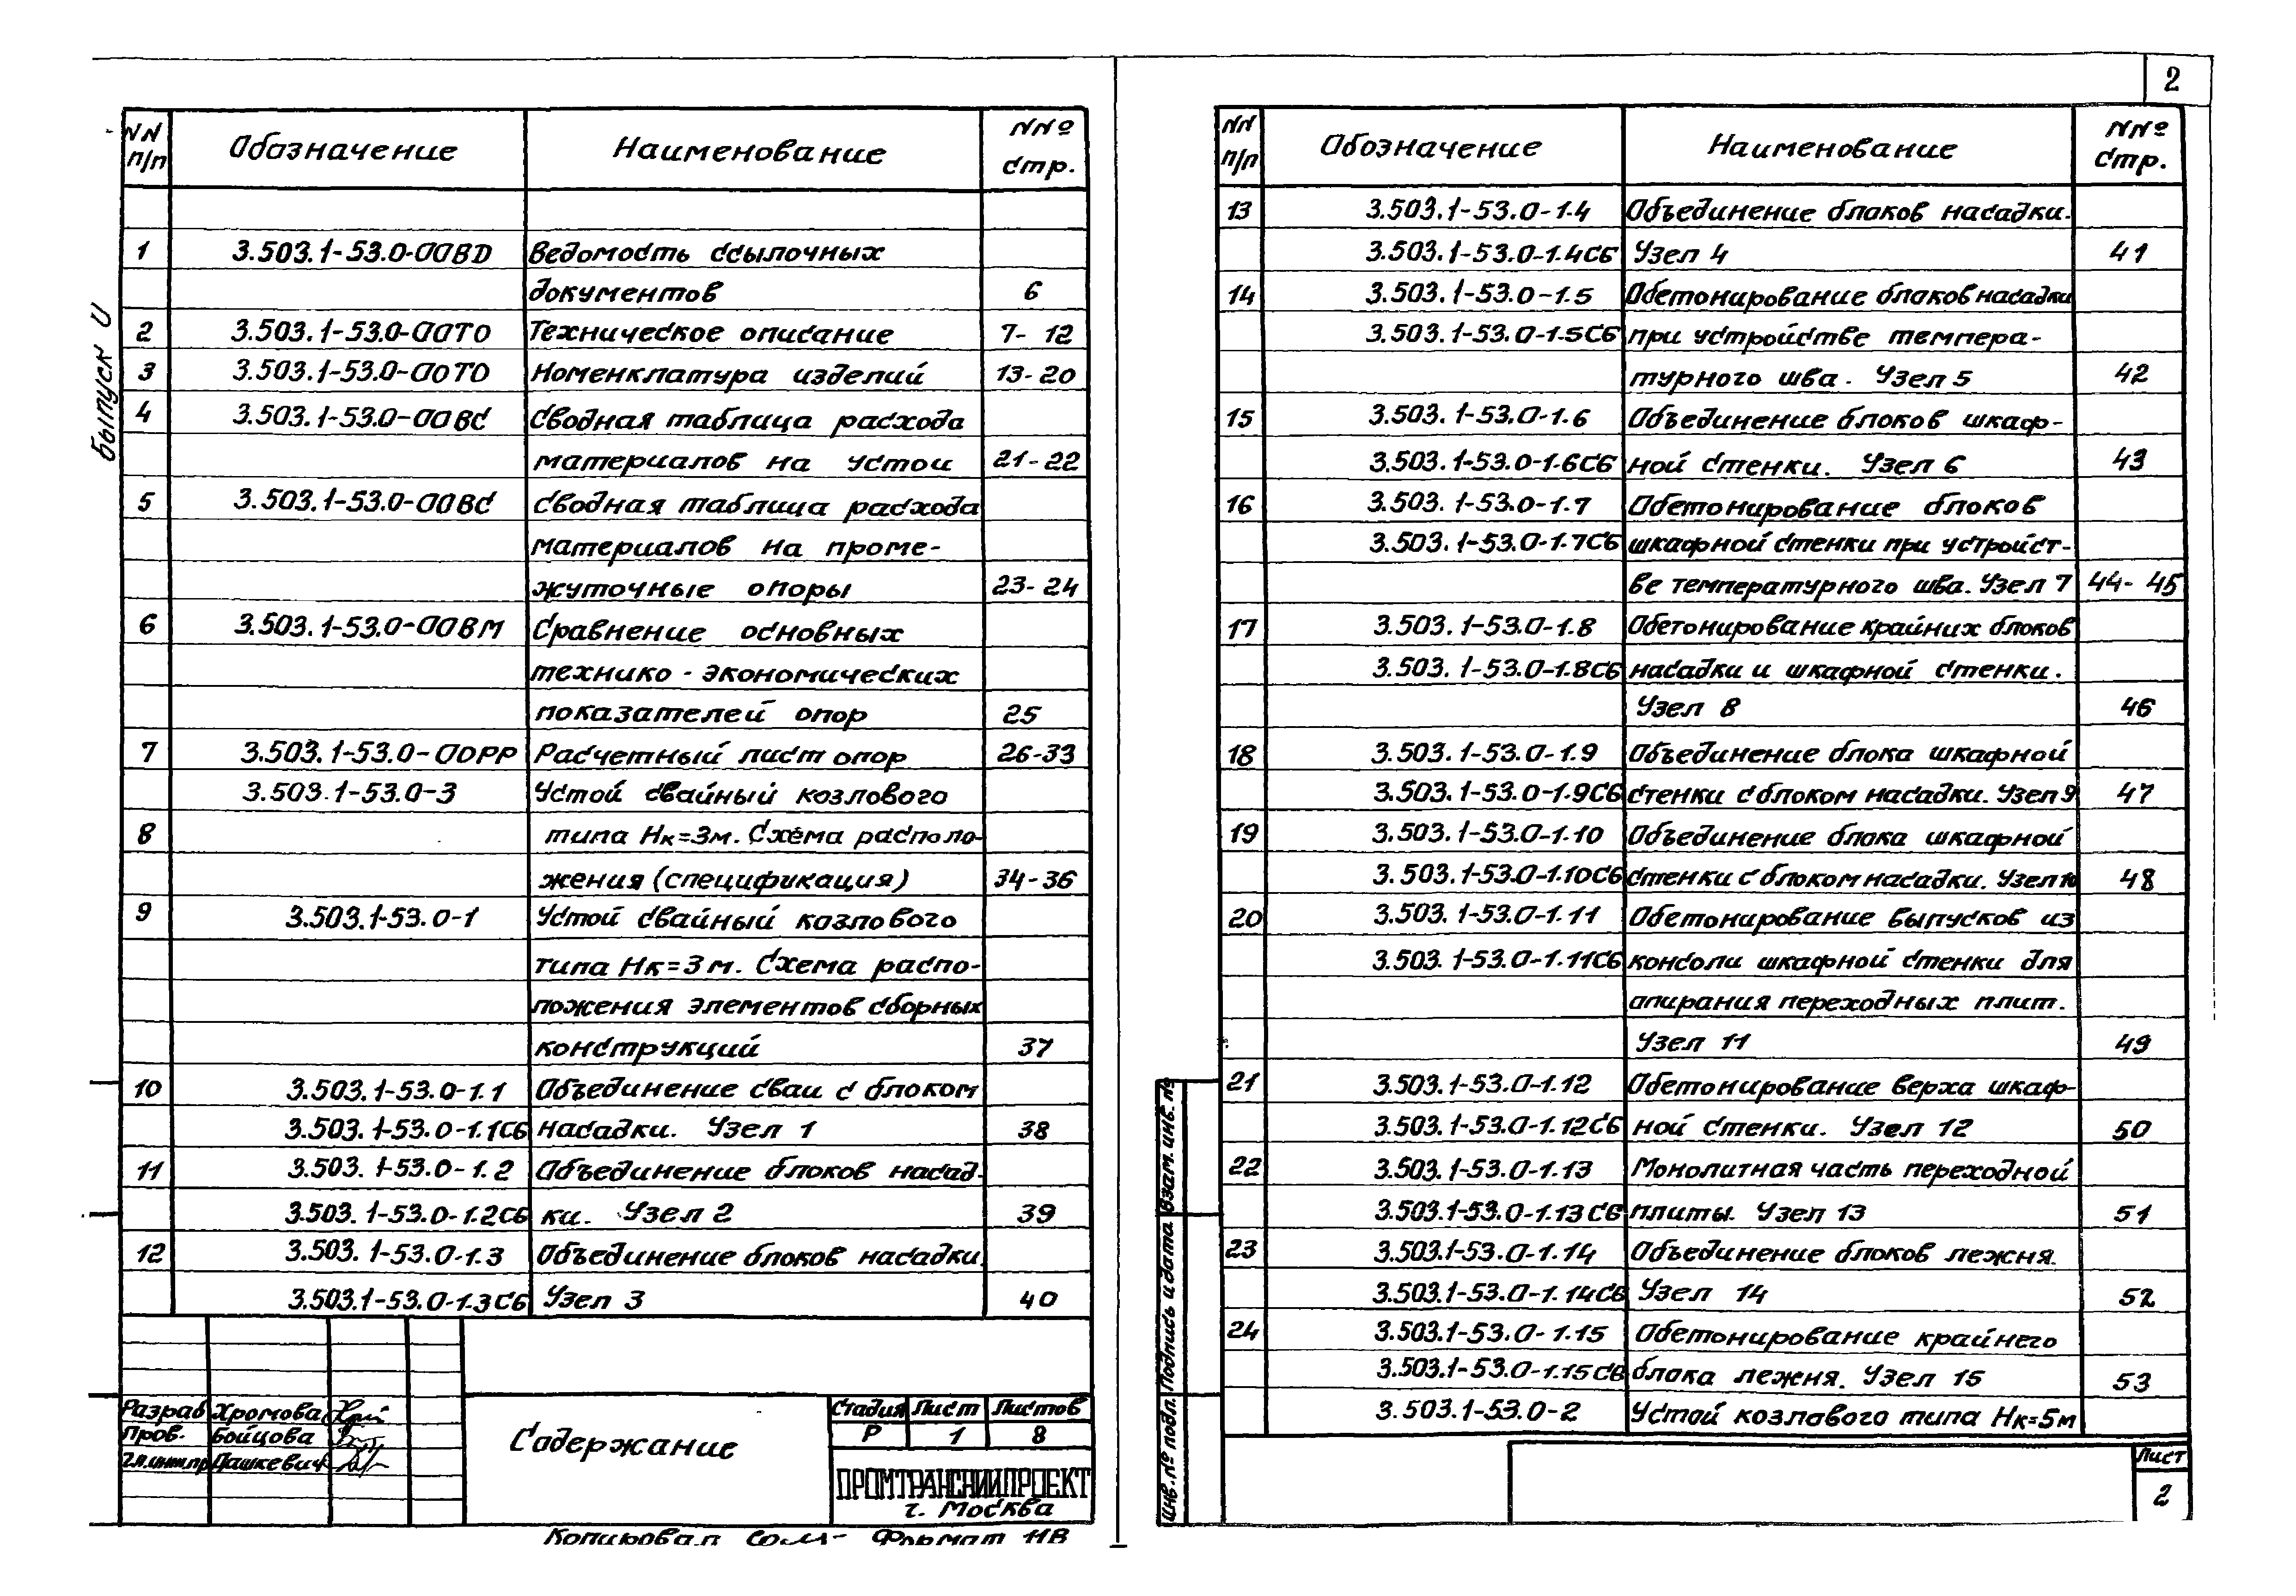 2
выпуск 0
NN п/п Обозначение Наименование NNº стр.
1 3.503.1-53.0-00ВD Ведомость ссылочных
документов 6
2 3.503.1-53.0-00ТО Техническое описание 7-12
3 3.503.1-53.0-00ТО Номенклатура изделий 13-20
4 3.503.1-53.0-00ВС Сводная таблица расхода
материалов на устои 21-22
5 3.503.1-53.0-00ВС Сводная таблица расхода
материалов на проме-
жуточные опоры 23-24
6 3.503.1-53.0-00ВМ Сравнение основных
технико-экономических
показателей опор 25
7 3.503.1-53.0-00РР Расчетный лист опор 26-33
3.503.1-53.0-3 Устой свайный козлового
8 типа Нк=3м. Схема располо-
жения (спецификация) 34-36
9 3.503.1-53.0-1 Устой свайный козлового
типа Нк=3м. Схема распо-
ложения элементов сборных
конструкций 37
10 3.503.1-53.0-1.1 Объединение сваи с блоком
3.503.1-53.0-1.1СБ насадки. Узел 1 38
11 3.503.1-53.0-1.2 Объединение блоков насад-
3.503.1-53.0-1.2СБ ки. Узел 2 39
12 3.503.1-53.0-1.3 Объединение блоков насадки.
3.503.1-53.0-1.3СБ Узел 3 40
Разраб Хромова
Пров. Бойцова
Гл.инж.пр Дашкевич
Содержание
Стадия Лист Листов
Р 1 8
ПРОМТРАНСНИИПРОЕКT
г. Москва
Копировал Формат 11В
NN п/п Обозначение Наименование NNº стр.
13 3.503.1-53.0-1.4 Объединение блоков насадки.
3.503.1-53.0-1.4СБ Узел 4 41
14 3.503.1-53.0-1.5 Обетонирование блоков насадки
3.503.1-53.0-1.5СБ при устройстве темпера-
турного шва. Узел 5 42
15 3.503.1-53.0-1.6 Объединение блоков шкаф-
3.503.1-53.0-1.6СБ ной стенки. Узел 6 43
16 3.503.1-53.0-1.7 Обетонирование блоков
3.503.1-53.0-1.7СБ шкафной стенки при устройст-
ве температурного шва. Узел 7 44-45
17 3.503.1-53.0-1.8 Обетонирование крайних блоков
3.503.1-53.0-1.8СБ насадки и шкафной стенки.
Узел 8 46
18 3.503.1-53.0-1.9 Объединение блока шкафной
3.503.1-53.0-1.9СБ стенки с блоком насадки. Узел 9 47
19 3.503.1-53.0-1.10 Объединение блока шкафной
3.503.1-53.0-1.10СБ стенки с блоком насадки. Узел 10 48
20 3.503.1-53.0-1.11 Обетонирование выпусков из
3.503.1-53.0-1.11СБ консоли шкафной стенки для
опирания переходных плит.
Узел 11 49
21 3.503.1-53.0-1.12 Обетонирование верха шкаф-
3.503.1-53.0-1.12СБ ной стенки. Узел 12 50
22 3.503.1-53.0-1.13 Монолитная часть переходной
3.503.1-53.0-1.13СБ плиты. Узел 13 51
23 3.503.1-53.0-1.14 Объединение блоков лежня.
3.503.1-53.0-1.14СБ Узел 14 52
24 3.503.1-53.0-1.15 Обетонирование крайнего
3.503.1-53.0-1.15СБ блока лежня. Узел 15 53
3.503.1-53.0-2 Устой козлового типа Нк=5м
Инв. № подл. Подпись и дата Взам. инв. №
Лист
2